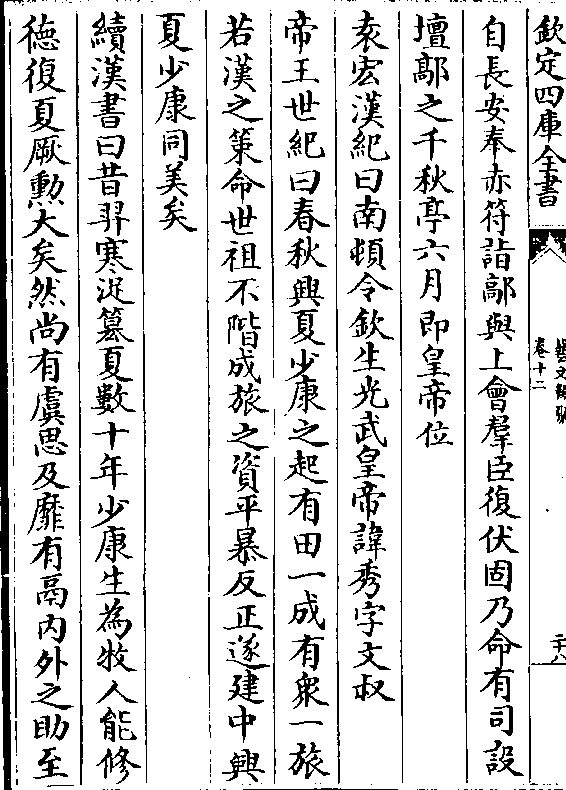 欽定四庫全書
藝文類聚
卷十二
二十八
自長安奉赤符詣鄗與上會羣臣復伏固乃命有司設
壇鄗之千秋亭六月即皇帝位
袁宏漢紀曰南頓令欽生光武皇帝諱秀字文叔
帝王世紀曰春秋興夏少康之起有田一成有衆一旅
若漢之策命世祖不階成旅之資平暴反正遂建中興
夏少康同美矣
續漢書曰昔羿寒浞簒夏數十年少康生為牧人能修
徳復夏厥勲大矣然尚有虞思及靡有鬲内外之助至